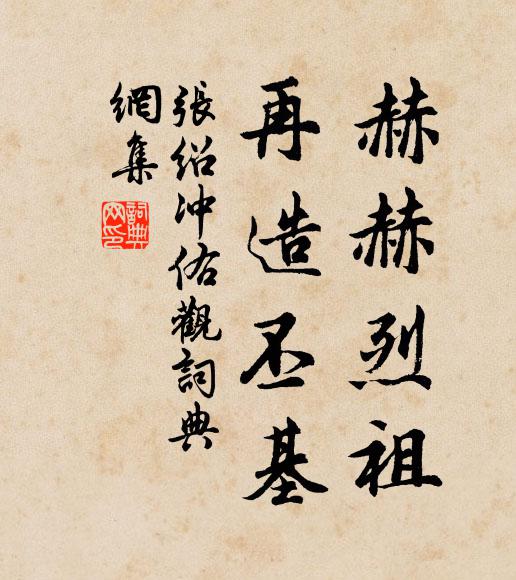 赫赫烈祖
再造丕基
張紹沖佑觀詞典
網集
詞典
网印